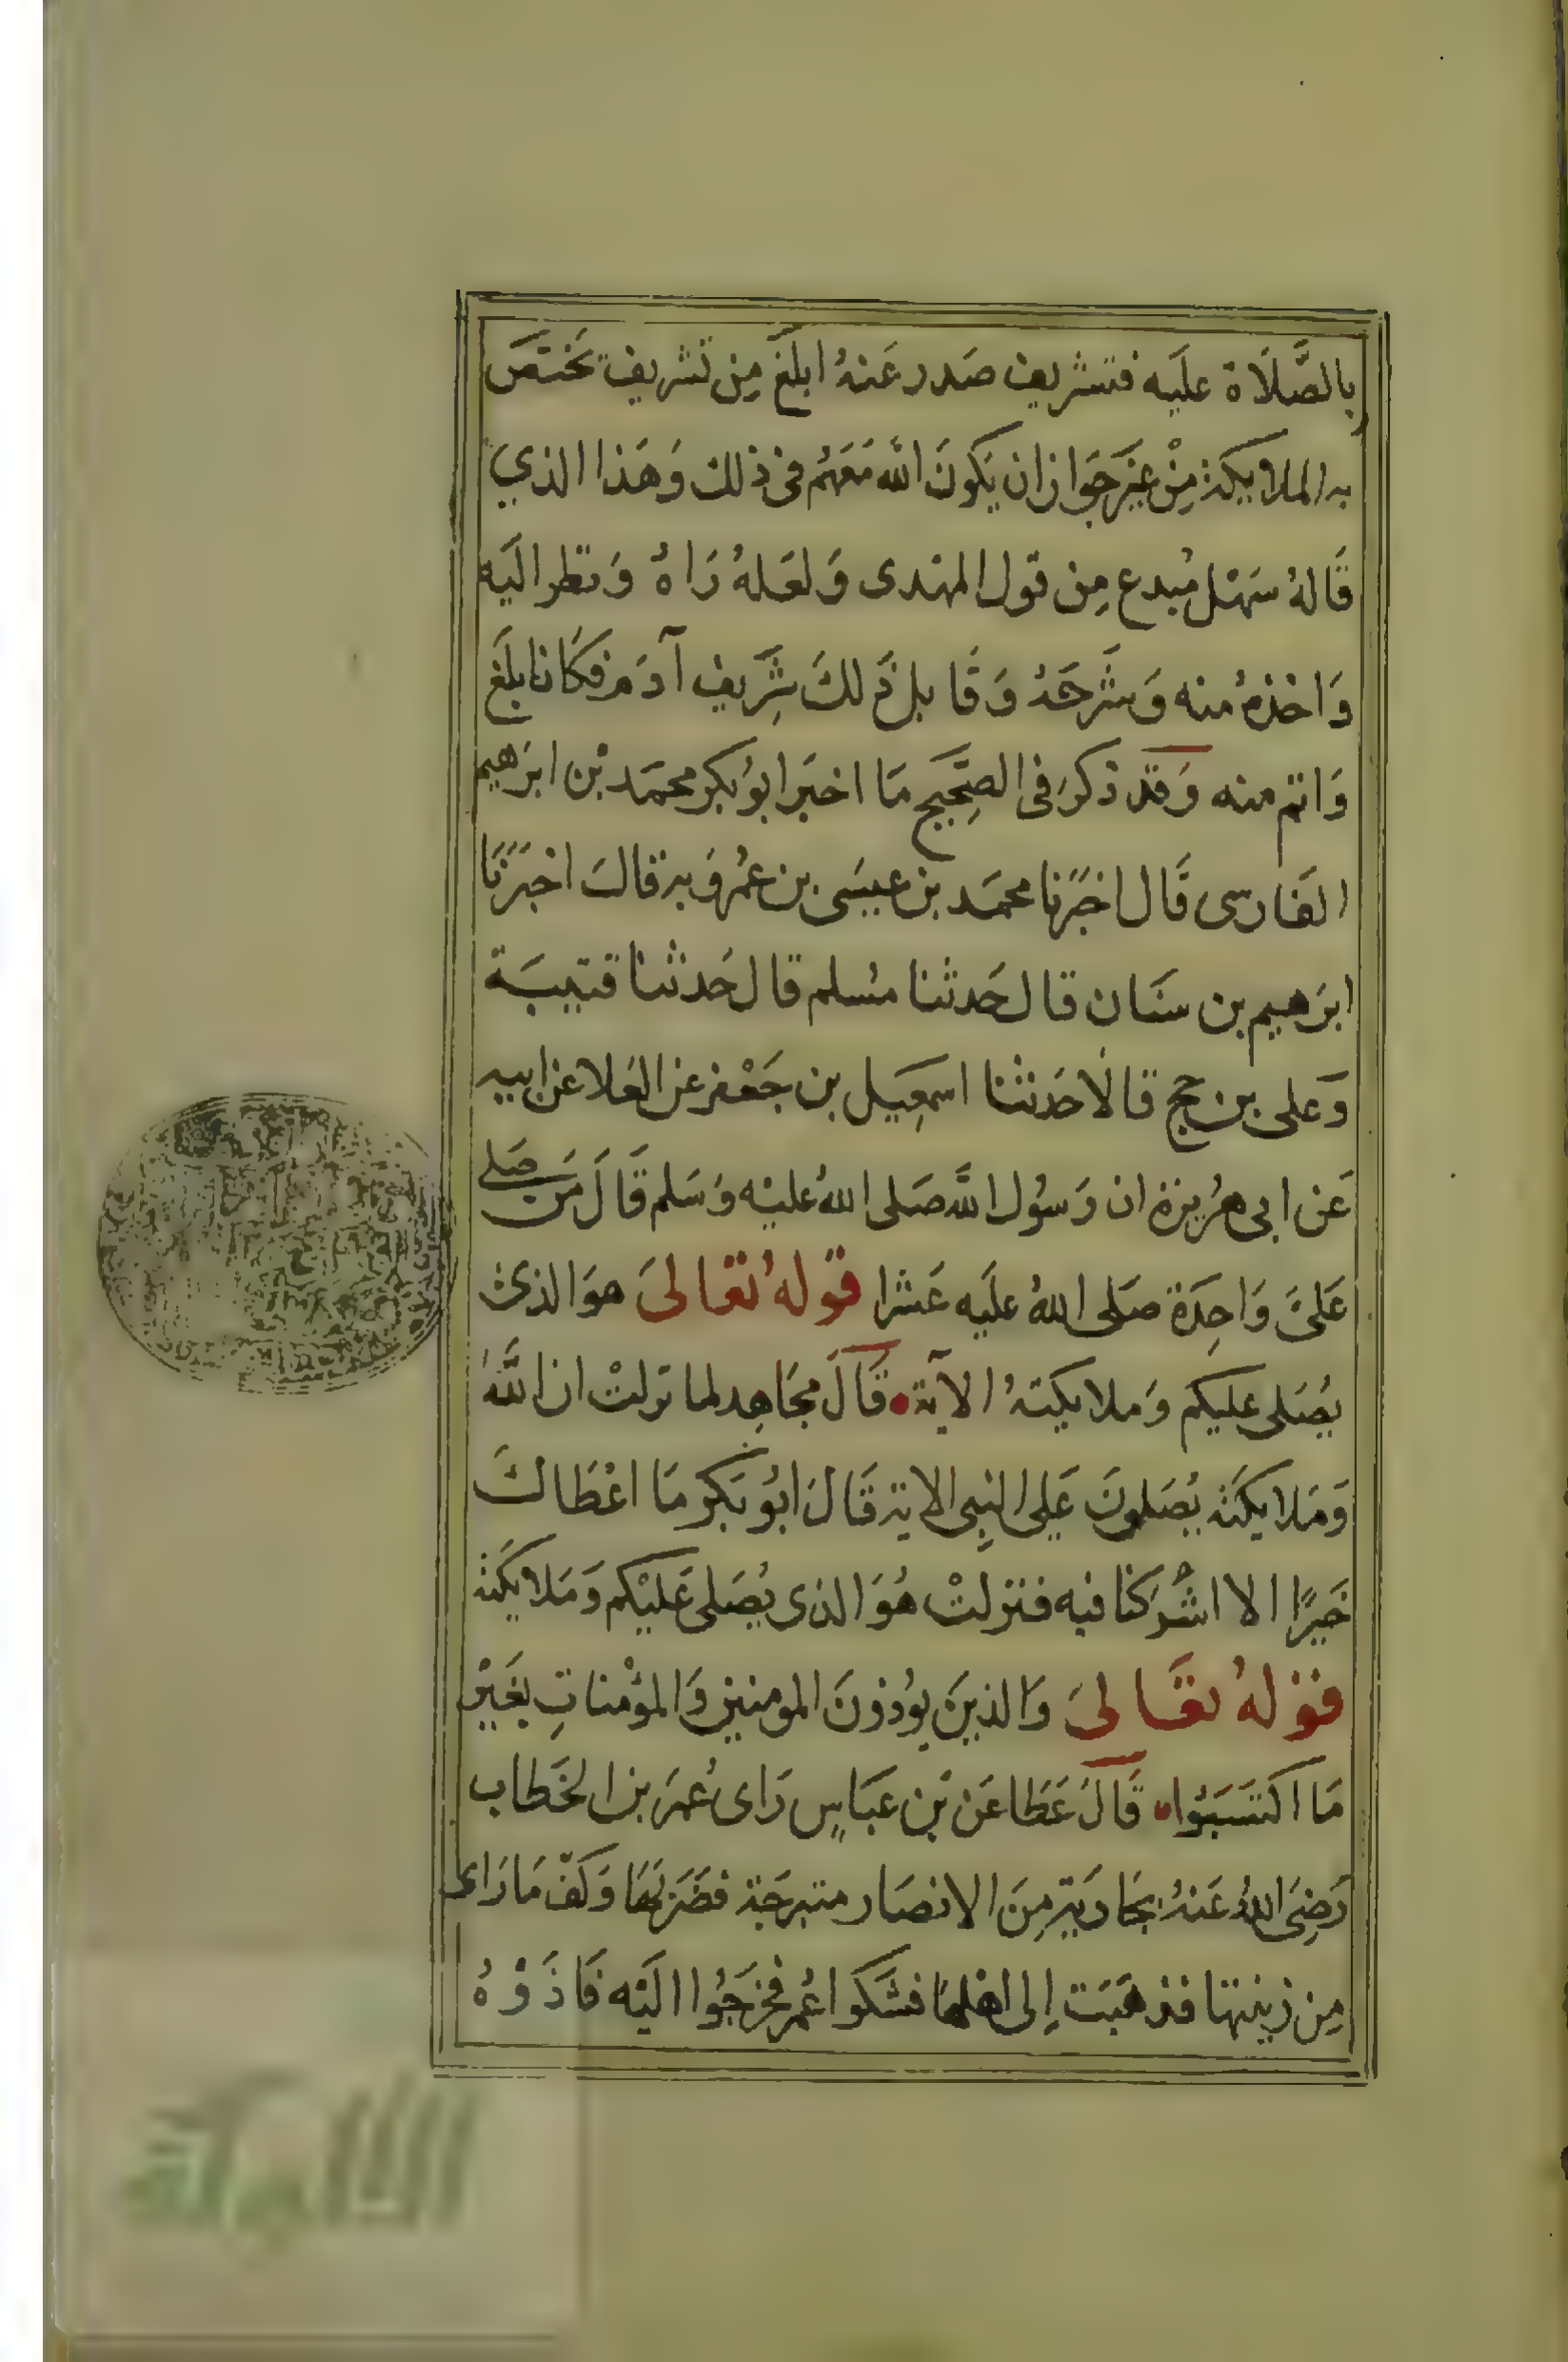 بالصَّلَاة علَيه فتشريف صَدر عَنهُ ابلَغ مِن تشريف تختصَ
به الملايكة مِنْ غيَر جَواز ان يَكونَ الله مَعَهُم فى ذلك وَهَذا الذي
قَالهُ سَهْل مُبدع مِن قول المهدى وَلعَلهُ رَاهُ وَنظر اليَه
وَاخذهُ منه وَشَرحَهُ وَقَابل ذَلكَ شَرِيف آدَم فَكانَ ابلَغ
وَاتم منه وَقد ذكرَ فى الصَّحِيح مَا اخبَر ابو بكر محمَد بْن ابرَهيم
الفَارسى قَال اخبَرنا محمَد بن عيسَى بن عمُروَيه قالَ اخبَرَنَا
ابرَهيم بن سنَان قال حَدثنا مسُلم قال حَدثنا قتيبَة
وَعَلى بن حج قالَا حَدثنا اسمعِيل بن جَعْفر عَن العَلا عَن ابيه
عَن ابى هرُيرَة ان رَسوُل اللَّه صَلى اللهُ عليْه وَسَلم قَالَ مَن صَلى
عَلىَّ وَاحِدَة صَلى اللهُ علَيه عَشرا قوَلهُ تعَالىَ هوَ الذىْ
يُصَلى عليكم وَملايكتهُ الآية قَالَ مجَاهِد لما نزلتْ ان اللَّهَ
وَمَلايكتَه يُصَلونَ عَلى النِبى الاية قَالَ ابُو بَكر مَا اعْطَاكَ
خَيرًا الا اشْرَكنا فيه فنزلتْ هُوَ الذى يُصَلى عَليْكم وَمَلايكَته
قوْلهُ تعَالىَ وَالذينَ يوُذونَ المومنين وَالمؤْمناتِ بغَيْر
مَا اكتسَبوُا قَالَ عَطَا عَن بْن عَبَاسٍ رَاى عُمَر بن الخَطاب
رَضِىَ اللهُ عَنهُ جَاريَة مِنَ الانصَار متبرجَة فضَرَبَهَا وَكَفّ مَا رَاى
مِن زينتها فذهَبَت اِلى اهْلهَا فشَكوا عُمر فخرَجُوا اليَْه فَاذَوْهُ
الألوكة